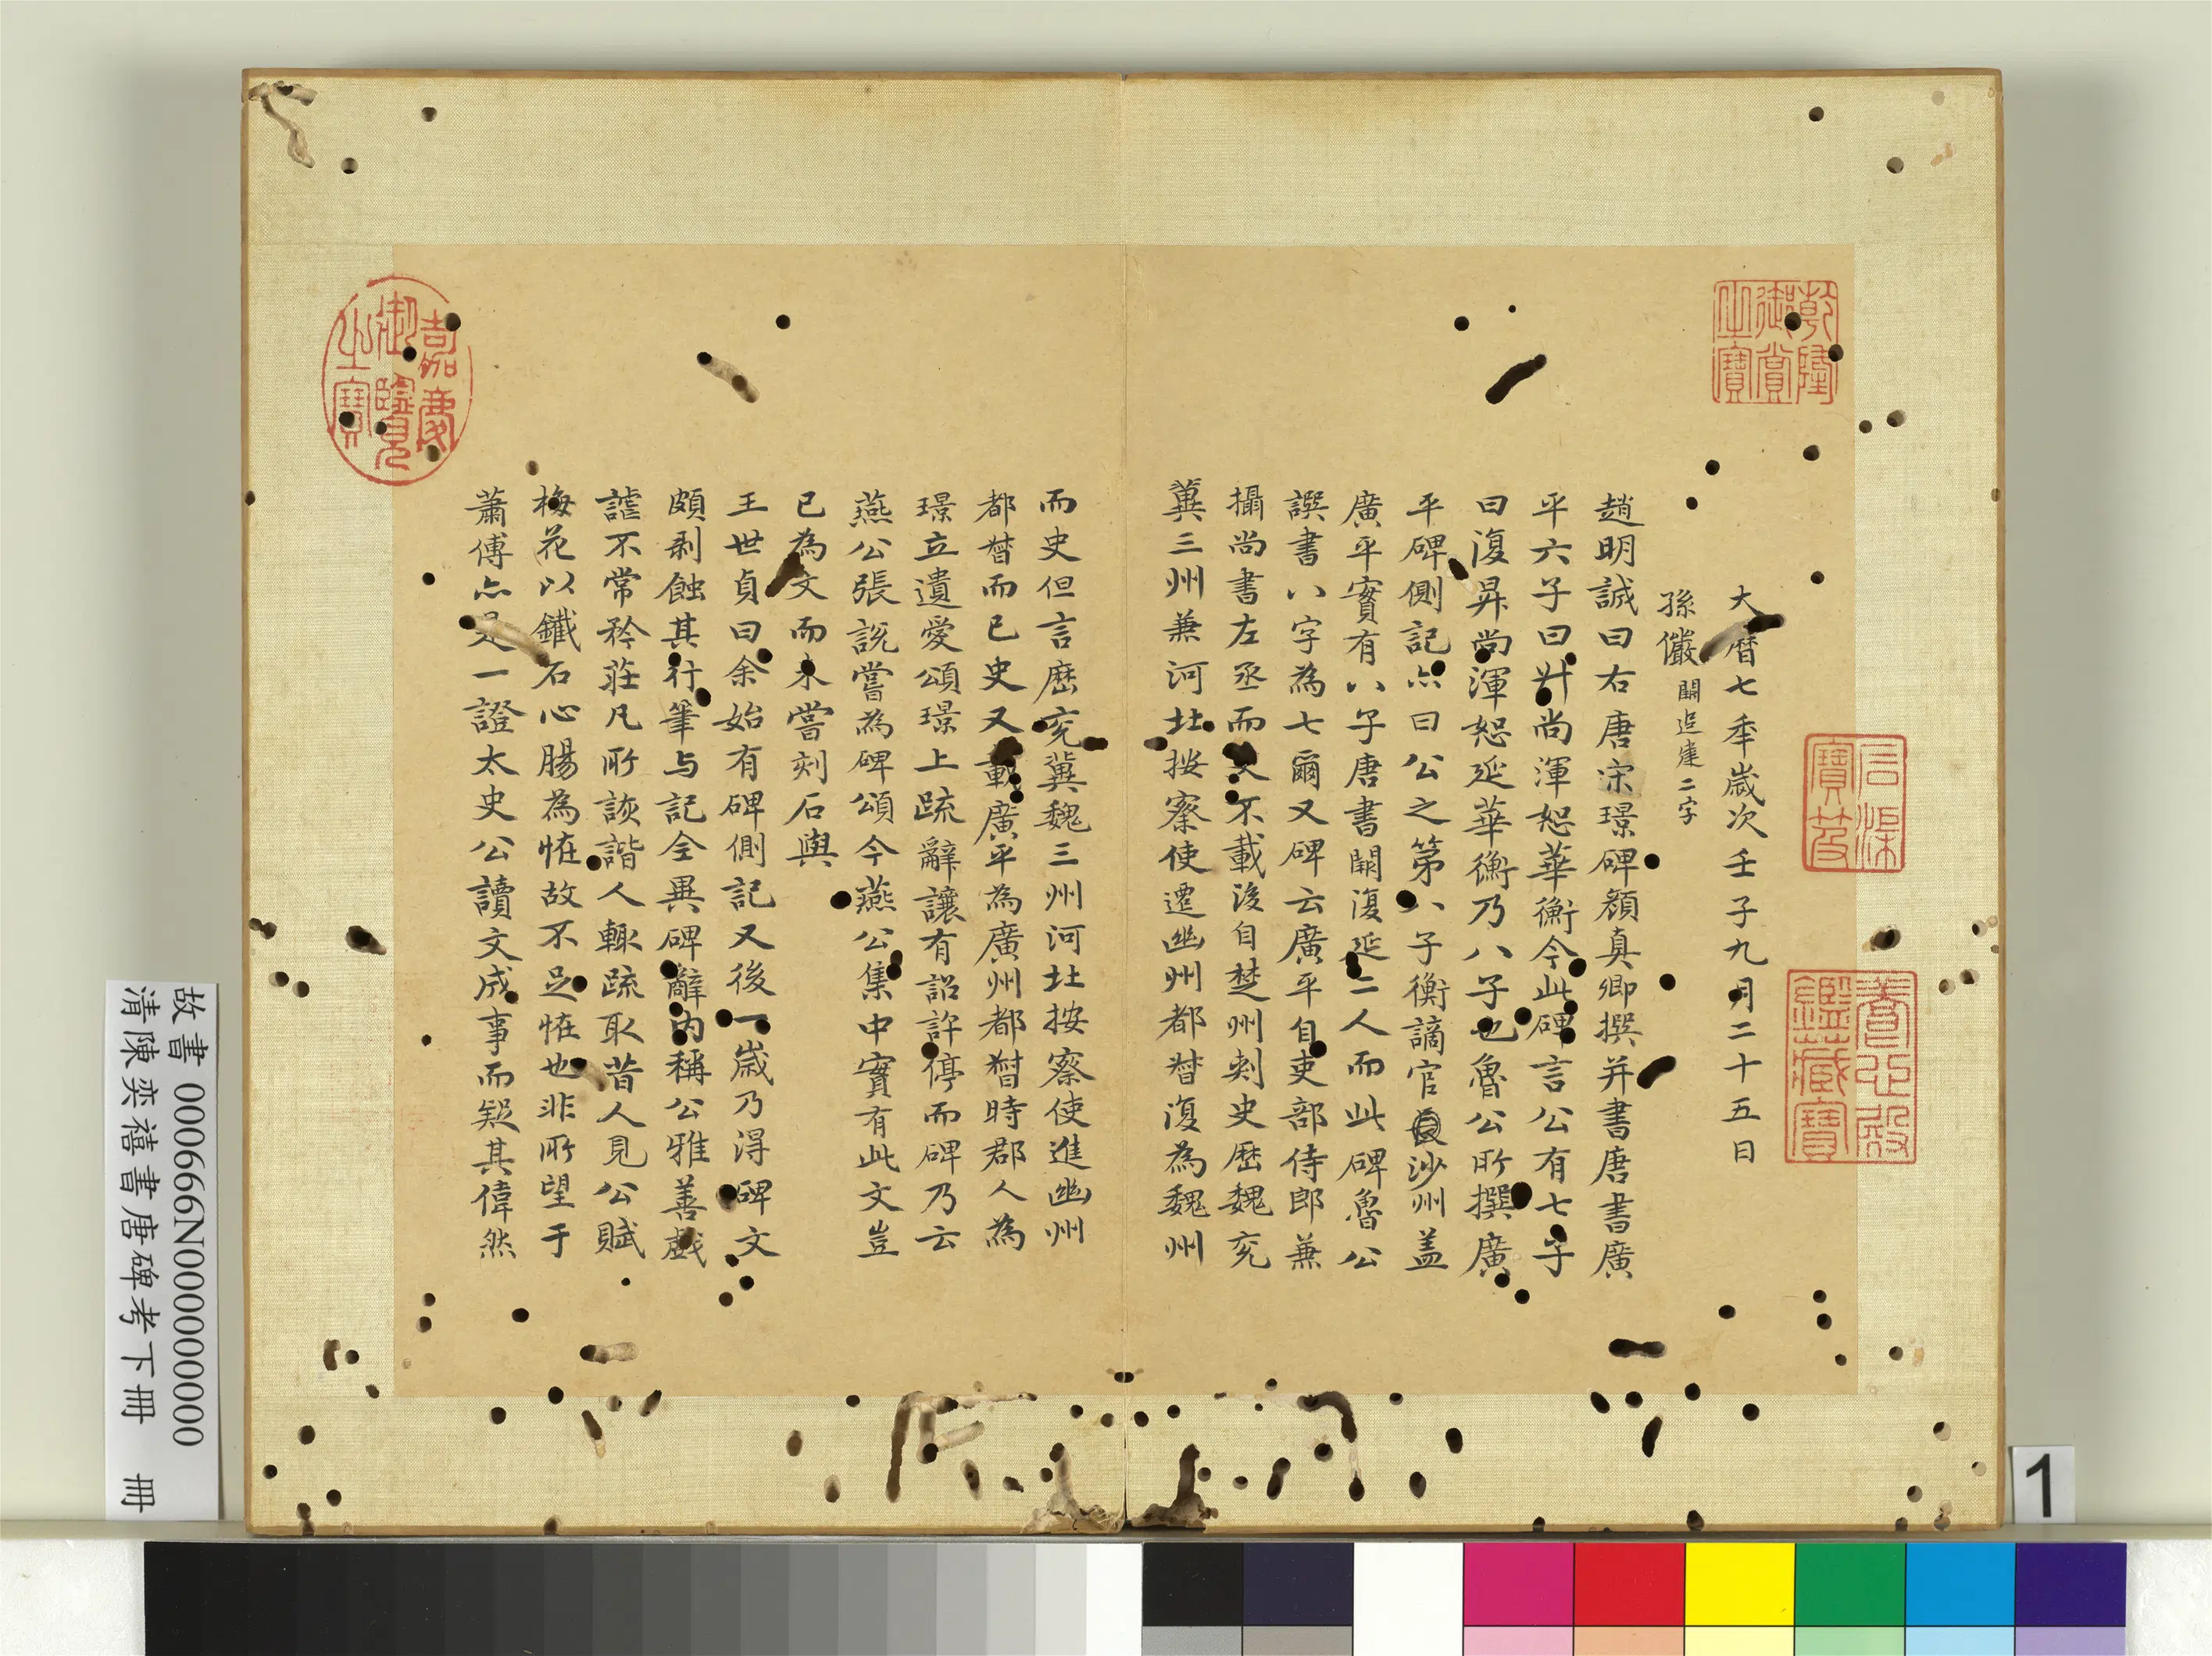 大曆七秊歲次壬子九月二十五日
孫儼關追建二字
趙明誠曰右唐宋璟碑顏真卿撰并書唐書廣
平六子曰昇尚渾恕華衡今此碑言公有七子
曰復昇尚渾恕延華衡乃八子也魯公所撰廣
平碑側記亦曰公之第八子衡謫官沙州盖
廣平實有八子唐書闕復延二人而此碑魯公
譔書八字為七爾又碑云廣平自吏部侍郎兼
攝尚書左丞而史不載後自楚州刺史歷魏兖
冀三州兼河北按察使遷幽州都督復為魏州
而史但言歷兖冀魏三州河北按察使進幽州
都督而已史又載廣平為廣州都督時郡人為
璟立遺愛頌璟上疏辭讓有詔許停而碑乃云
燕公張說嘗為碑頌今燕公集中實有此文豈
已為文而未嘗刻石與
王世貞曰余始有碑側記又後一歲乃得碑文
頗剥蝕其行筆与記全異碑辭內稱公雅善戲
謔不常矜莊凡所詼諧人輒疏取昔人見公賦
梅花以鐵石心腸為恠故不足恠也非所望于
蕭傅亦是一證太史公讀文成事而疑其偉然
乾隆御賞之寶
石渠寶笈
養心殿鑑藏寶
嘉慶御覽之寶
故書 000666N000000000
清陳奕禧書唐碑考下冊 冊
1